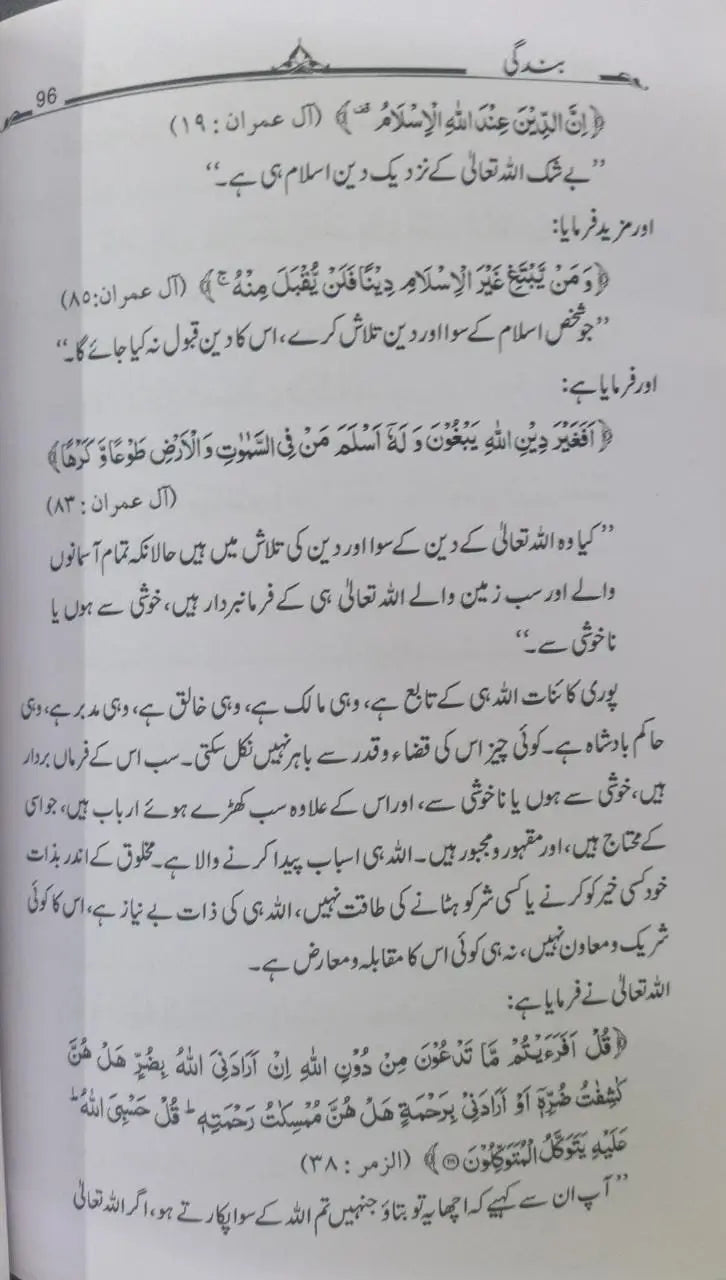 بندگی
96
﴿اِنَّ الدِّيْنَ عِنْدَ اللّٰهِ الْاِسْلَامُ ۫﴾ (آل عمران : ١٩)
”بے شک اللہ تعالیٰ کے نزدیک دین اسلام ہی ہے۔“
اور مزید فرمایا:
﴿وَ مَنْ يَّبْتَغِ غَيْرَ الْاِسْلَامِ دِيْنًا فَلَنْ يُّقْبَلَ مِنْهُ ۚ﴾ (آل عمران:٨٥)
”جو شخص اسلام کے سوا اور دین تلاش کرے، اس کا دین قبول نہ کیا جائے گا۔“
اور فرمایا ہے:
﴿اَفَغَيْرَ دِيْنِ اللّٰهِ يَبْغُوْنَ وَ لَهٗٓ اَسْلَمَ مَنْ فِي السَّمٰوٰتِ وَ الْاَرْضِ طَوْعًا وَّ كَرْهًا﴾
(آل عمران : ٨٣)
”کیا وہ اللہ تعالیٰ کے دین کے سوا اور دین کی تلاش میں ہیں حالانکہ تمام آسمانوں
والے اور سب زمین والے اللہ تعالیٰ ہی کے فرمانبردار ہیں، خوشی سے ہوں یا
ناخوشی سے۔“
پوری کائنات اللہ ہی کے تابع ہے، وہی مالک ہے، وہی خالق ہے، وہی مدبر ہے، وہی
حاکم بادشاہ ہے۔ کوئی چیز اس کی قضاء و قدر سے باہر نہیں نکل سکتی۔ سب اس کے فرماں بردار
ہیں، خوشی سے ہوں یا ناخوشی سے، اور اس کے علاوہ سب کھڑے ہوئے ارباب ہیں، جو اسی
کے محتاج ہیں، اور مقہور و مجبور ہیں۔ اللہ ہی اسباب پیدا کرنے والا ہے۔ مخلوق کے اندر بذات
خود کسی خیر کو کرنے یا کسی شر کو ہٹانے کی طاقت نہیں، اللہ ہی کی ذات بے نیاز ہے، اس کا کوئی
شریک و معاون نہیں، نہ ہی کوئی اس کا مقابلہ و معارض ہے۔
اللہ تعالیٰ نے فرمایا ہے:
﴿قُلْ اَفَرَءَيْتُمْ مَّا تَدْعُوْنَ مِنْ دُوْنِ اللّٰهِ اِنْ اَرَادَنِيَ اللّٰهُ بِضُرٍّ هَلْ هُنَّ
كٰشِفٰتُ ضُرِّهٖٓ اَوْ اَرَادَنِيْ بِرَحْمَةٍ هَلْ هُنَّ مُمْسِكٰتُ رَحْمَتِهٖ ؕ قُلْ حَسْبِيَ اللّٰهُ ؕ
عَلَيْهِ يَتَوَكَّلُ الْمُتَوَكِّلُوْنَ ۝٣٨﴾ (الزمر : ٣٨)
”آپ ان سے کہیے کہ اچھا یہ تو بتاؤ جنہیں تم اللہ کے سوا پکارتے ہو، اگر اللہ تعالیٰ